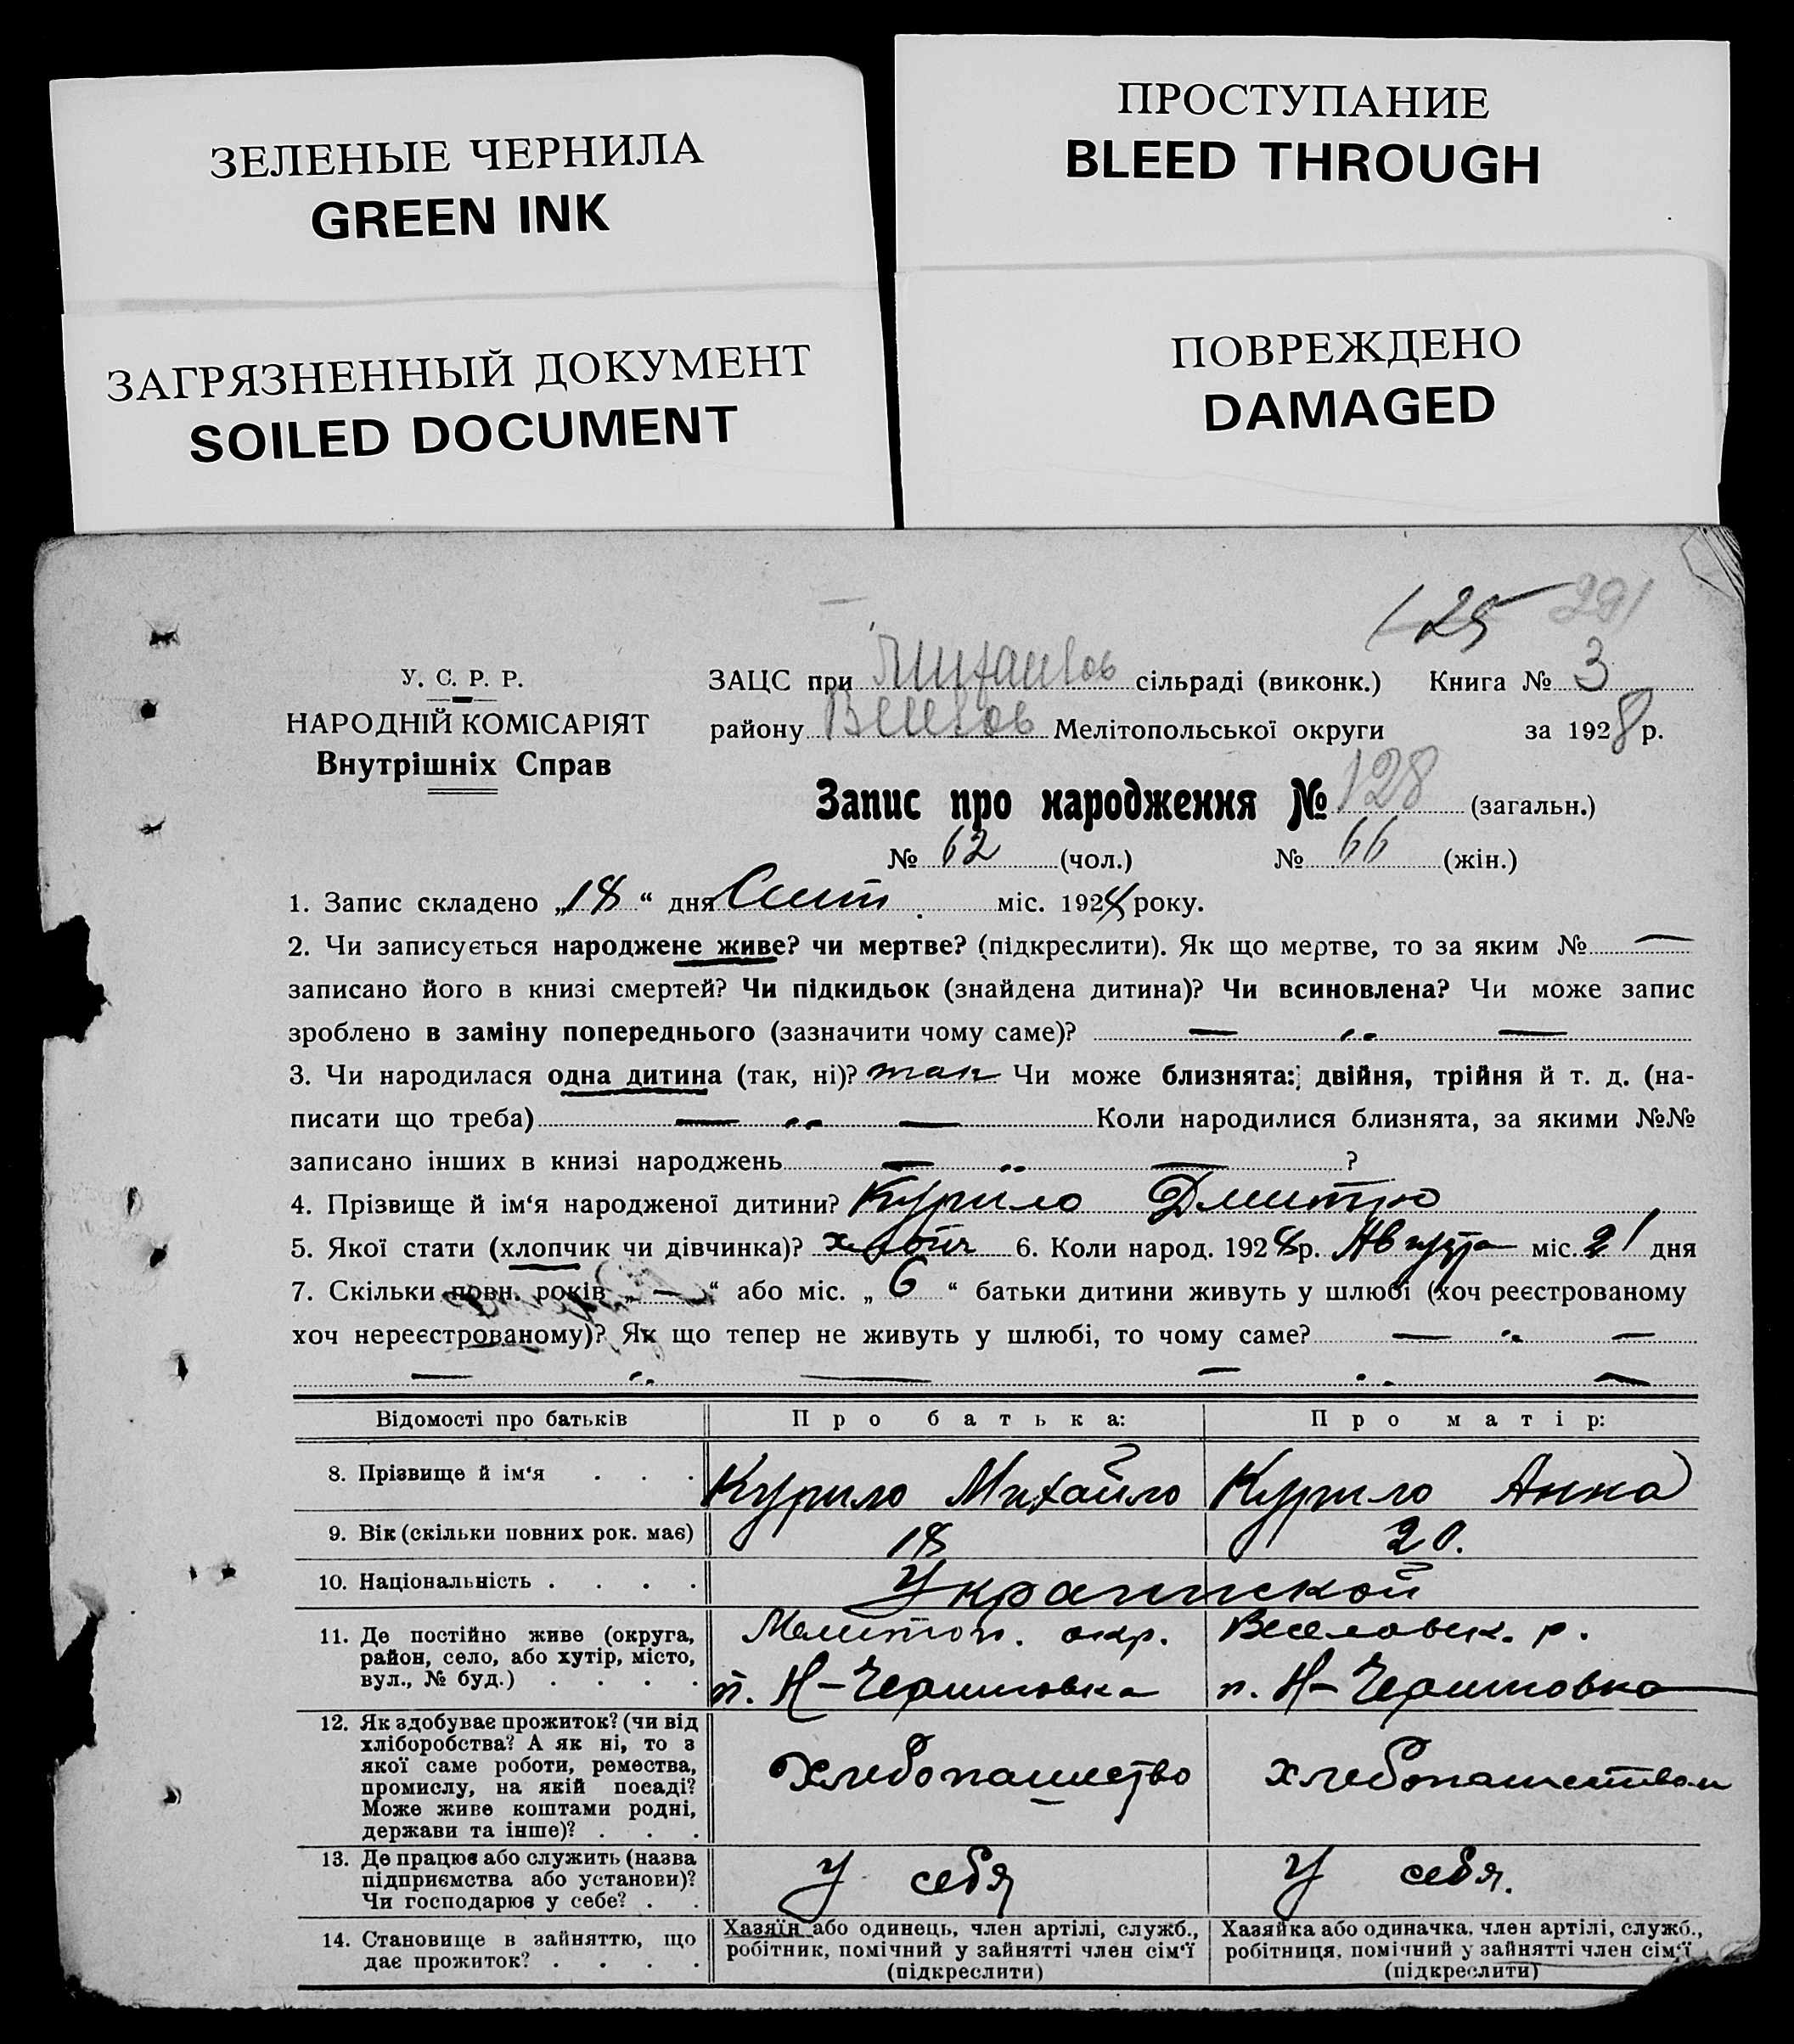 ЗЕЛЕНЫЕ ЧЕРНИЛА
GREEN INK
ПРОСТУПАНИЕ
BLEED THROUGH
ЗАГРЯЗНЕННЫЙ ДОКУМЕНТ
SOILED DOCUMENT
ПОВРЕЖДЕНО
DAMAGED
125 291
У. С. Р. Р.
НАРОДНІЙ КОМІСАРІЯТ
Внутрішніх Справ
ЗАЦС при Михайлов сільраді (виконк.) Книга № 3
району Весел Мелітопольської округи за 1928 р.
Запис про народження № 128 (загальн.)
№ 62 (чол.) № 66 (жін.)
1. Запис складено „18“ дня Сент міс. 1928 року.
2. Чи записується народжене живе? чи мертве? (підкреслити). Як що мертве, то за яким № —
записано його в книзі смертей? Чи підкидьок (знайдена дитина)? Чи всиновлена? Чи може запис
зроблено в заміну попереднього (зазначити чому саме)? — „ —
3. Чи народилася одна дитина (так, ні)? так Чи може близнята: двійня, трійня й т. д. (на-
писати що треба) — „ — Коли народилися близнята, за якими №№
записано інших в книзі народжень — „ — ?
4. Прізвище й ім‘я народженої дитини? Курило Дмитро
5. Якої стати (хлопчик чи дівчинка)? 6. Коли народ. 1928 р. Августа міс. 21 дня
7. Скільки повн. років „—“ або міс. „6“ батьки дитини живуть у шлюбі (хоч реєстрованому
хоч нереєстрованому)? Як що тепер не живуть у шлюбі, то чому саме? — „ —
— „ — — „ —
Відомості про батьків Про батька: Про матір:
8. Прізвище й ім‘я . . . Курило Михайло Курило Анна
9. Вік (скільки повних рок. має) 18 20.
10. Національність . . . . Украинской
11. Де постійно живе (округа,
район, село, або хутір, місто,
вул., № буд.) . . . .
Мелитоп. окр. Веселовск. р.
п. Н-Черниговка п. Н-Черниговка
12. Як здобуває прожиток? (чи від
хліборобства? А як ні, то з
якої саме роботи, ремества,
промислу, на якій посаді?
Може живе коштами родні,
держави та інше)? . . .
Хлебопашество хлебопашеством
13. Де працює або служить (назва
підприємства або установи)?
Чи господарює у себе? . .
У себя У себя.
14. Становище в зайняттю, що
дає прожиток? . . . .
Хазяїн або одинець, член артілі, служб.,
робітник, помічний у зайнятті член сім‘ї
(підкреслити)
Хазяйка або одиначка, член артілі, служб.,
робітниця, помічний у зайнятті член сім‘ї
(підкреслити)